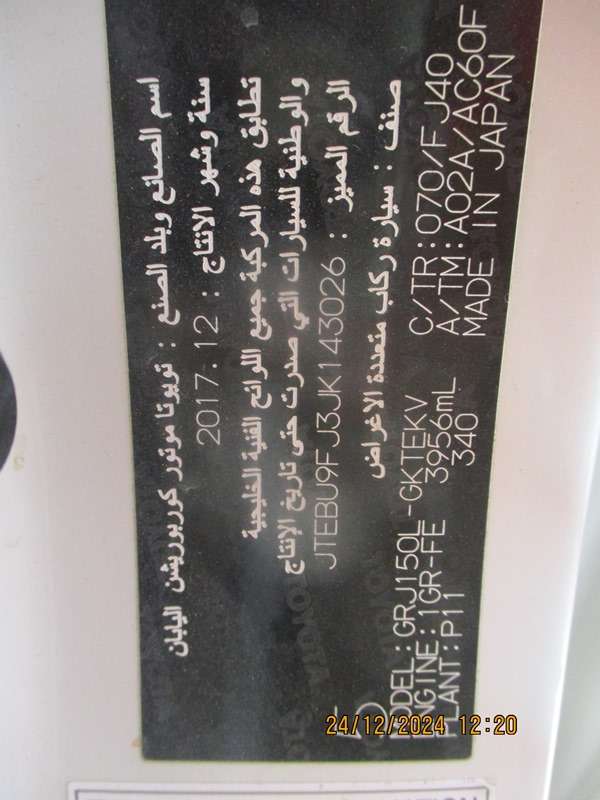 اسم الصانع وبلد الصنع : تويوتا موتور كوربوريشن اليابان
سنة وشهر الانتاج : 2017.12
تطابق هذه المركبة جميع اللوائح الفنية الخليجية
والوطنية للسيارات التي صدرت حتى تاريخ الإنتاج
الرقم المميز : JTEBU9FJ3JK143026
صنف : سيارة ركاب متعددة الاغراض
MODEL:GRJ150L-GKTEKV C/TR:070/FJ40
ENGINE:1GR-FE 3956mL A/TM:A02A/AC60F
PLANT:P11 340 MADE IN JAPAN
24/12/2024 12:20